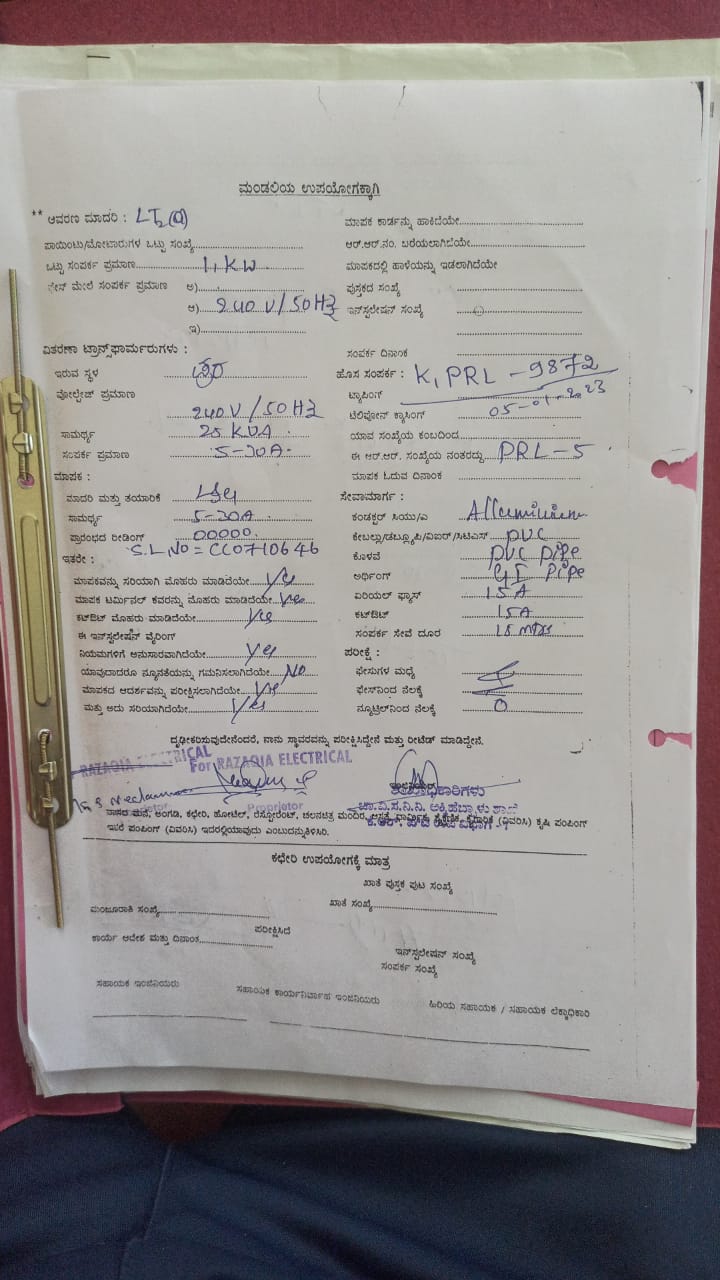 ಮಂಡಲಿಯ ಉಪಯೋಗಕ್ಕಾಗಿ
** ಆವರಣ ಮಾದರಿ : LT2(a)
ಪಾಯಿಂಟು/ಮೋಟಾರುಗಳ ಒಟ್ಟು ಸಂಖ್ಯೆ
ಒಟ್ಟು ಸಂಪರ್ಕ ಪ್ರಮಾಣ 1, KW
ಫೇಸ್ ಮೇಲೆ ಸಂಪರ್ಕ ಪ್ರಮಾಣ ಅ)
ಆ) 240 V/50HZ
ಇ)
ವಿತರಣಾ ಟ್ರಾನ್ಸ್‌ಫಾರ್ಮರುಗಳು :
ಇರುವ ಸ್ಥಳ
ವೋಲ್ಟೇಜ್ ಪ್ರಮಾಣ
240V/50HZ
ಸಾಮರ್ಥ್ಯ 25 KVA
ಸಂಪರ್ಕ ಪ್ರಮಾಣ 5-30A
ಮಾಪಕ :
ಮಾದರಿ ಮತ್ತು ತಯಾರಿಕೆ
ಸಾಮರ್ಥ್ಯ 5-30A
ಪ್ರಾರಂಭದ ರೀಡಿಂಗ್ 00000
S.L No = CC0710646
ಇತರೇ :
ಮಾಪಕವನ್ನು ಸರಿಯಾಗಿ ಮೊಹರು ಮಾಡಿದೆಯೇ Yes
ಮಾಪಕ ಟರ್ಮಿನಲ್ ಕವರನ್ನು ಮೊಹರು ಮಾಡಿದೆಯೇ Yes
ಕಟ್‌ಔಟ್ ಮೊಹರು ಮಾಡಿದೆಯೇ Yes
ಈ ಇನ್‌ಸ್ಟಲೇಷನ್ ವೈರಿಂಗ್
ನಿಯಮಗಳಿಗೆ ಅನುಸಾರವಾಗಿದೆಯೇ Yes
ಯಾವುದಾದರೂ ನ್ಯೂನತೆಯನ್ನು ಗಮನಿಸಲಾಗಿದೆಯೇ No
ಮಾಪಕದ ಆದರ್ಶವನ್ನು ಪರೀಕ್ಷಿಸಲಾಗಿದೆಯೇ Yes
ಮತ್ತು ಅದು ಸರಿಯಾಗಿದೆಯೇ Yes
ಮಾಪಕ ಕಾರ್ಡನ್ನು ಹಾಕಿದೆಯೇ
ಆರ್.ಆರ್.ನಂ. ಬರೆಯಲಾಗಿದೆಯೇ
ಮಾಪಕದಲ್ಲಿ ಹಾಳೆಯನ್ನು ಇಡಲಾಗಿದೆಯೇ
ಪುಸ್ತಕದ ಸಂಖ್ಯೆ
ಇನ್‌ಸ್ಟಲೇಷನ್ ಸಂಖ್ಯೆ
ಸಂಪರ್ಕ ದಿನಾಂಕ
ಹೊಸ ಸಂಪರ್ಕ : K, PRL - 9872
ಟ್ಯಾಪಿಂಗ್ 05-01-2023
ಟೆಲಿಫೋನ್ ಕ್ರಾಸಿಂಗ್
ಯಾವ ಸಂಖ್ಯೆಯ ಕಂಬದಿಂದ
ಈ ಆರ್.ಆರ್. ಸಂಖ್ಯೆಯ ನಂತರದ್ದು PRL-5
ಮಾಪಕ ಓದುವ ದಿನಾಂಕ
ಸೇವಾಮಾರ್ಗ :
ಕಂಡಕ್ಟರ್ ಸಿಯು/ಎ Alluminium
ಕೇಬಲ್ಲು/ಡಬ್ಲ್ಯೂಪಿ/ವಿಐಆರ್/ಸಿಟಿಎಸ್ PVC
ಕೊಳವೆ PVC pipe
ಅರ್ಥಿಂಗ್ GI Pipe
ಏರಿಯಲ್ ಫ್ಯೂಸ್ 15A
ಕಟ್‌ಔಟ್ 15A
ಸಂಪರ್ಕ ಸೇವೆ ದೂರ 15 mtrs
ಪರೀಕ್ಷೆ :
ಫೇಸುಗಳ ಮಧ್ಯೆ
ಫೇಸ್‌ನಿಂದ ನೆಲಕ್ಕೆ
ನ್ಯೂಟ್ರಲ್‌ನಿಂದ ನೆಲಕ್ಕೆ 0
ದೃಢೀಕರಿಸುವುದೇನೆಂದರೆ, ನಾನು ಸ್ಥಾವರವನ್ನು ಪರೀಕ್ಷಿಸಿದ್ದೇನೆ ಮತ್ತು ರೀಟೆಡ್ ಮಾಡಿದ್ದೇನೆ.
RAZAQIA ELECTRICAL
For RAZAQIA ELECTRICAL
Proprietor
ಚಾ.ವಿ.ಸ.ನಿ.ನಿ. ಅಕ್ಕಿಹೆಬ್ಬಾಳು ಶಾಖೆ
ವಾಸದ ಮನೆ, ಅಂಗಡಿ, ಕಛೇರಿ, ಹೋಟೆಲ್, ರೆಸ್ಟೋರೆಂಟ್, ಚಲನಚಿತ್ರ ಮಂದಿರ, ಆಸ್ಪತ್ರೆ, ಧಾರ್ಮಿಕ, ಶೈಕ್ಷಣಿಕ, ಕೈಗಾರಿಕೆ (ವಿವರಿಸಿ) ಕೃಷಿ ಪಂಪಿಂಗ್
ಇತರೆ ಪಂಪಿಂಗ್ (ವಿವರಿಸಿ) ಇದರಲ್ಲಿಯಾವುದು ಎಂಬುದನ್ನುತಿಳಿಸಿರಿ.
ಕಛೇರಿ ಉಪಯೋಗಕ್ಕೆ ಮಾತ್ರ
ಖಾತೆ ಪುಸ್ತಕ ಪುಟ ಸಂಖ್ಯೆ
ಮಂಜೂರಾತಿ ಸಂಖ್ಯೆ ಖಾತೆ ಸಂಖ್ಯೆ
ಪರೀಕ್ಷಿಸಿದೆ
ಕಾರ್ಯ ಆದೇಶ ಮತ್ತು ದಿನಾಂಕ
ಇನ್‌ಸ್ಟಲೇಷನ್ ಸಂಖ್ಯೆ
ಸಂಪರ್ಕ ಸಂಖ್ಯೆ
ಸಹಾಯಕ ಇಂಜಿನಿಯರು ಸಹಾಯಕ ಕಾರ್ಯನಿರ್ವಾಹ ಇಂಜಿನಿಯರು ಹಿರಿಯ ಸಹಾಯಕ / ಸಹಾಯಕ ಲೆಕ್ಕಾಧಿಕಾರಿ